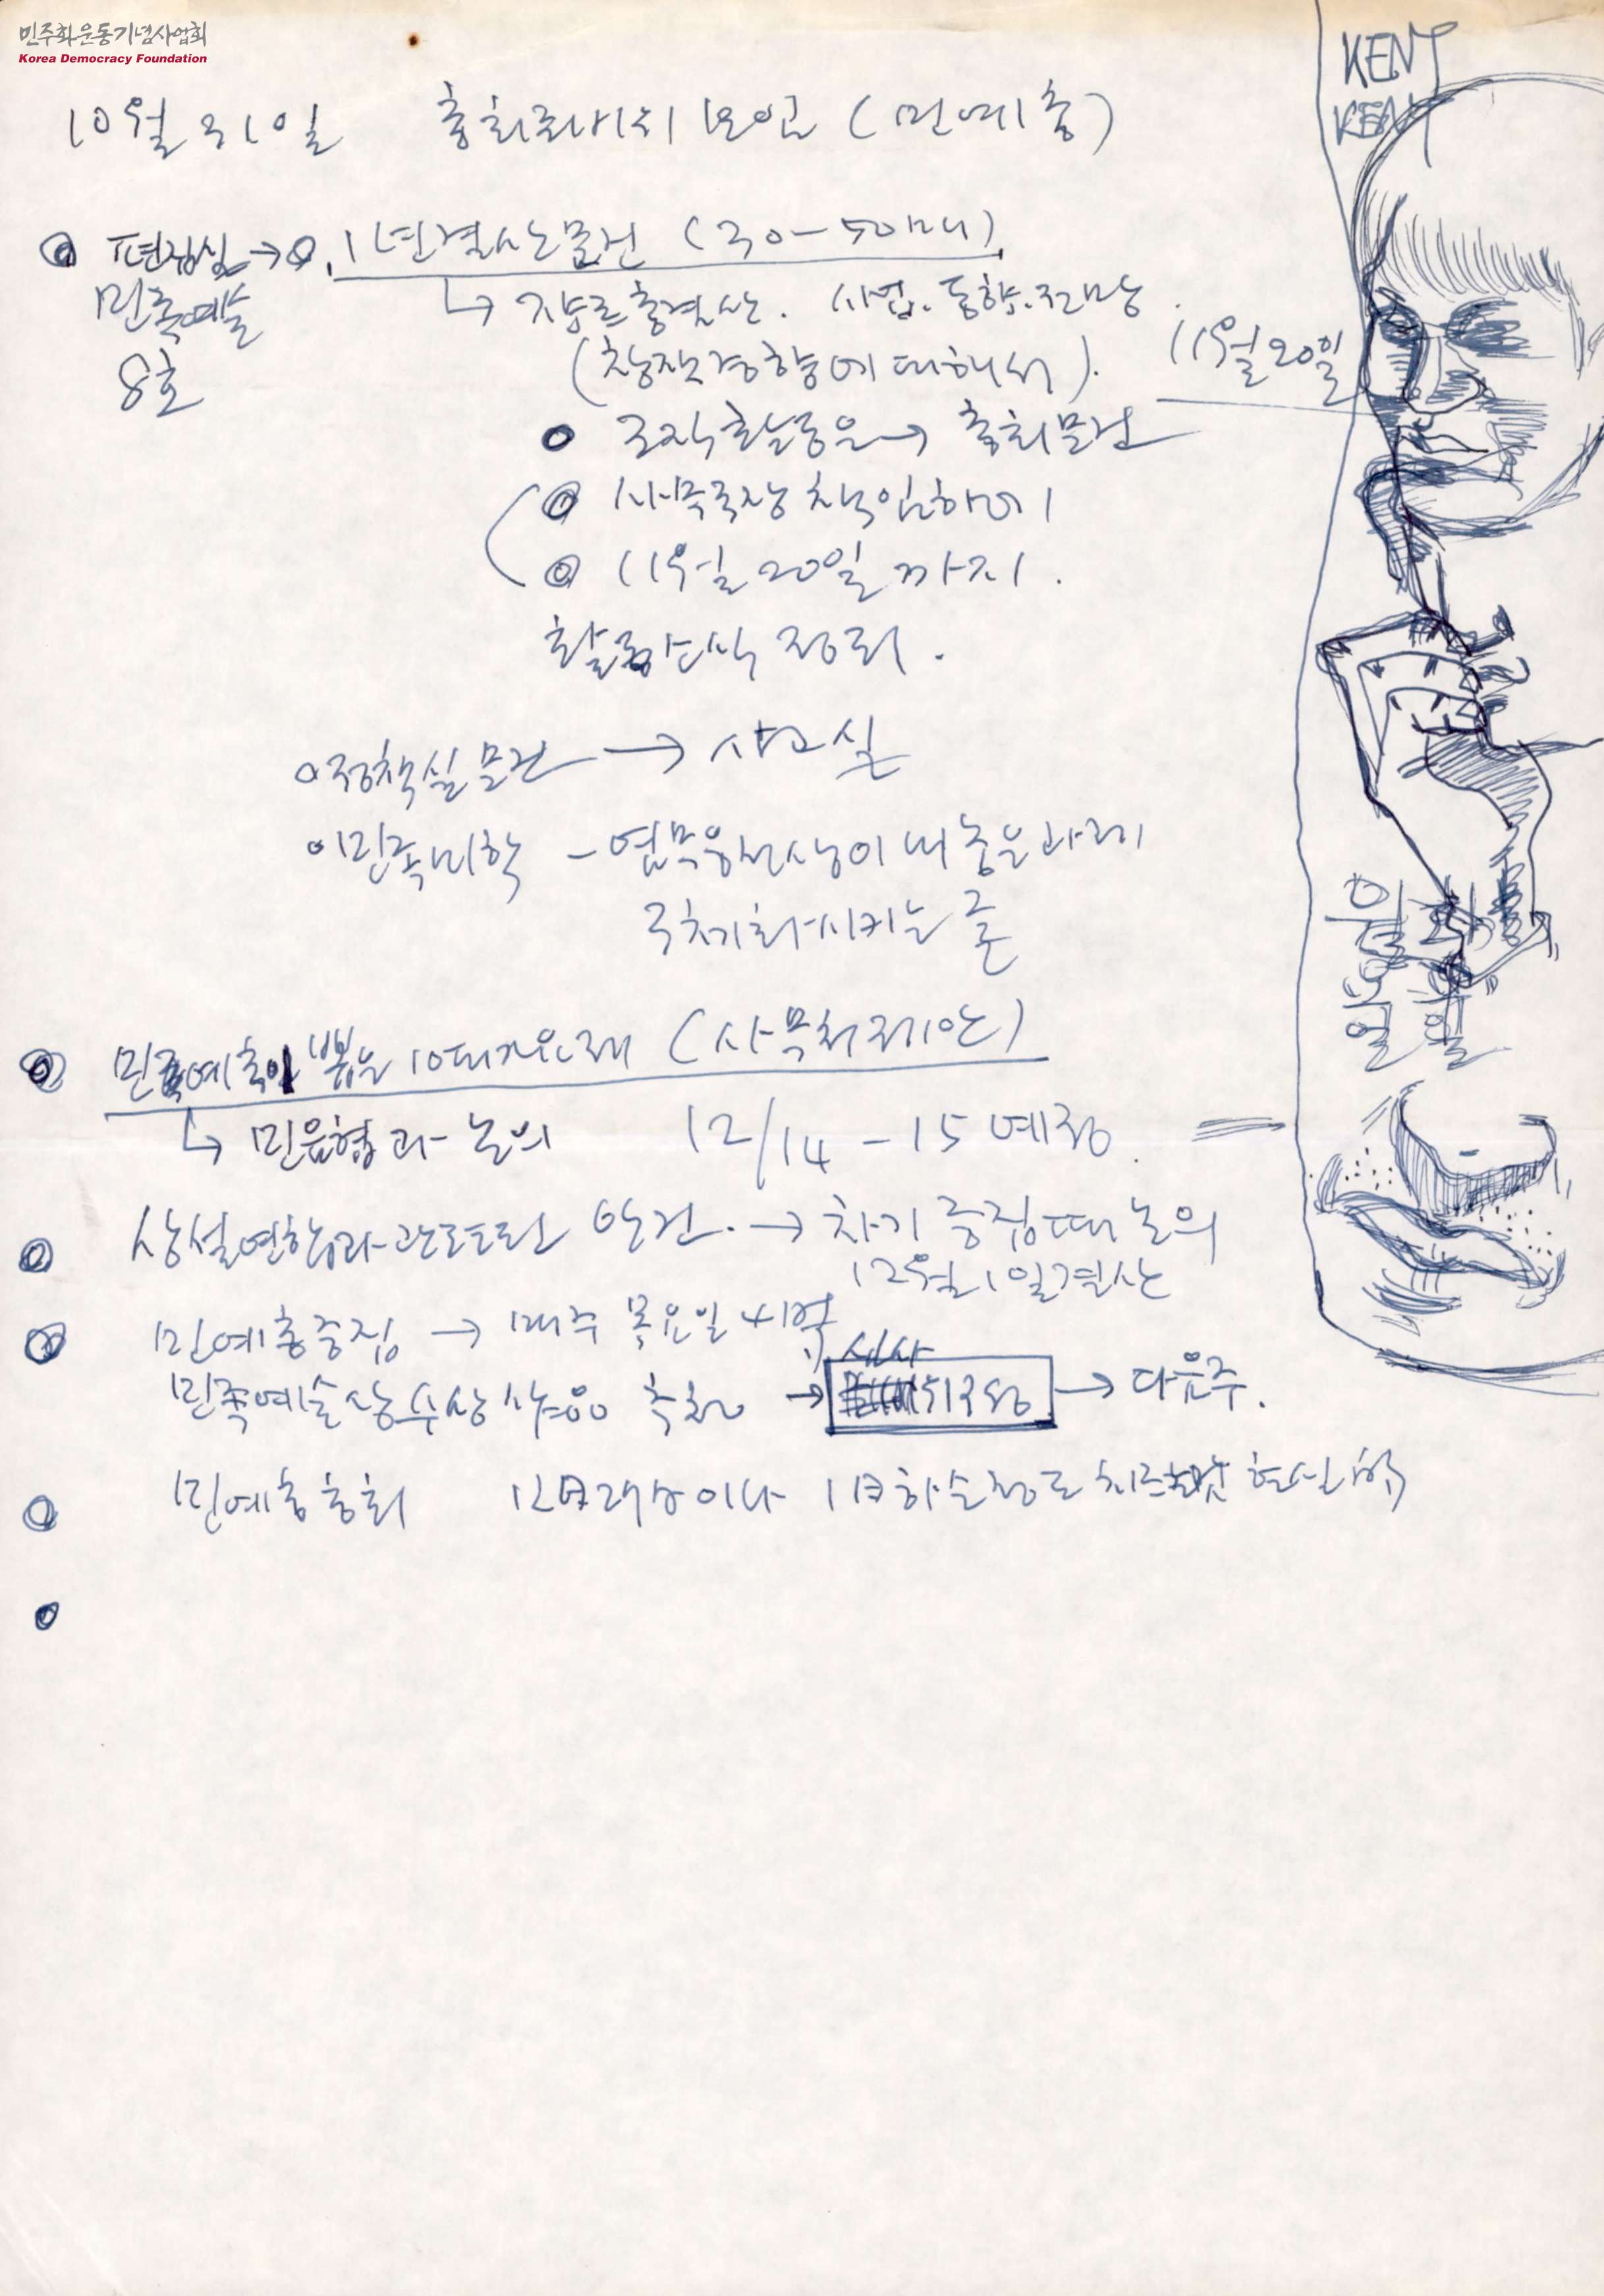 민주화운동기념사업회
Korea Democracy Foundation
KENT
KENT
10월 31일 총회준비위 모임 (민예총)
편집실 → 1년결산문건 (30-50매)
민족예술
8호
장르총결산. 사업. 동향. 전망.
(창작경향에 대해서).
11월 20일
조직활동은 → 총회문건
사무국장 책임하에
11월 20일 까지.
활동방식 정리.
정책실 문건 → 사고실
민족미학 - 염무웅선생이 내용을
구체화시키는 중
민족예총이 뽑은 10대가요제 (사무처 제안)
민음협과 논의 12/14 - 15 예정.
상설연합과 관련된 안건. → 차기 중집때 논의
12월 1일 결산
민예총중집 → 매주 목요일 4시
심사
민족예술상 수상 추천 → 위구성 → 다음주.
민예총 총회 1월 하순정도